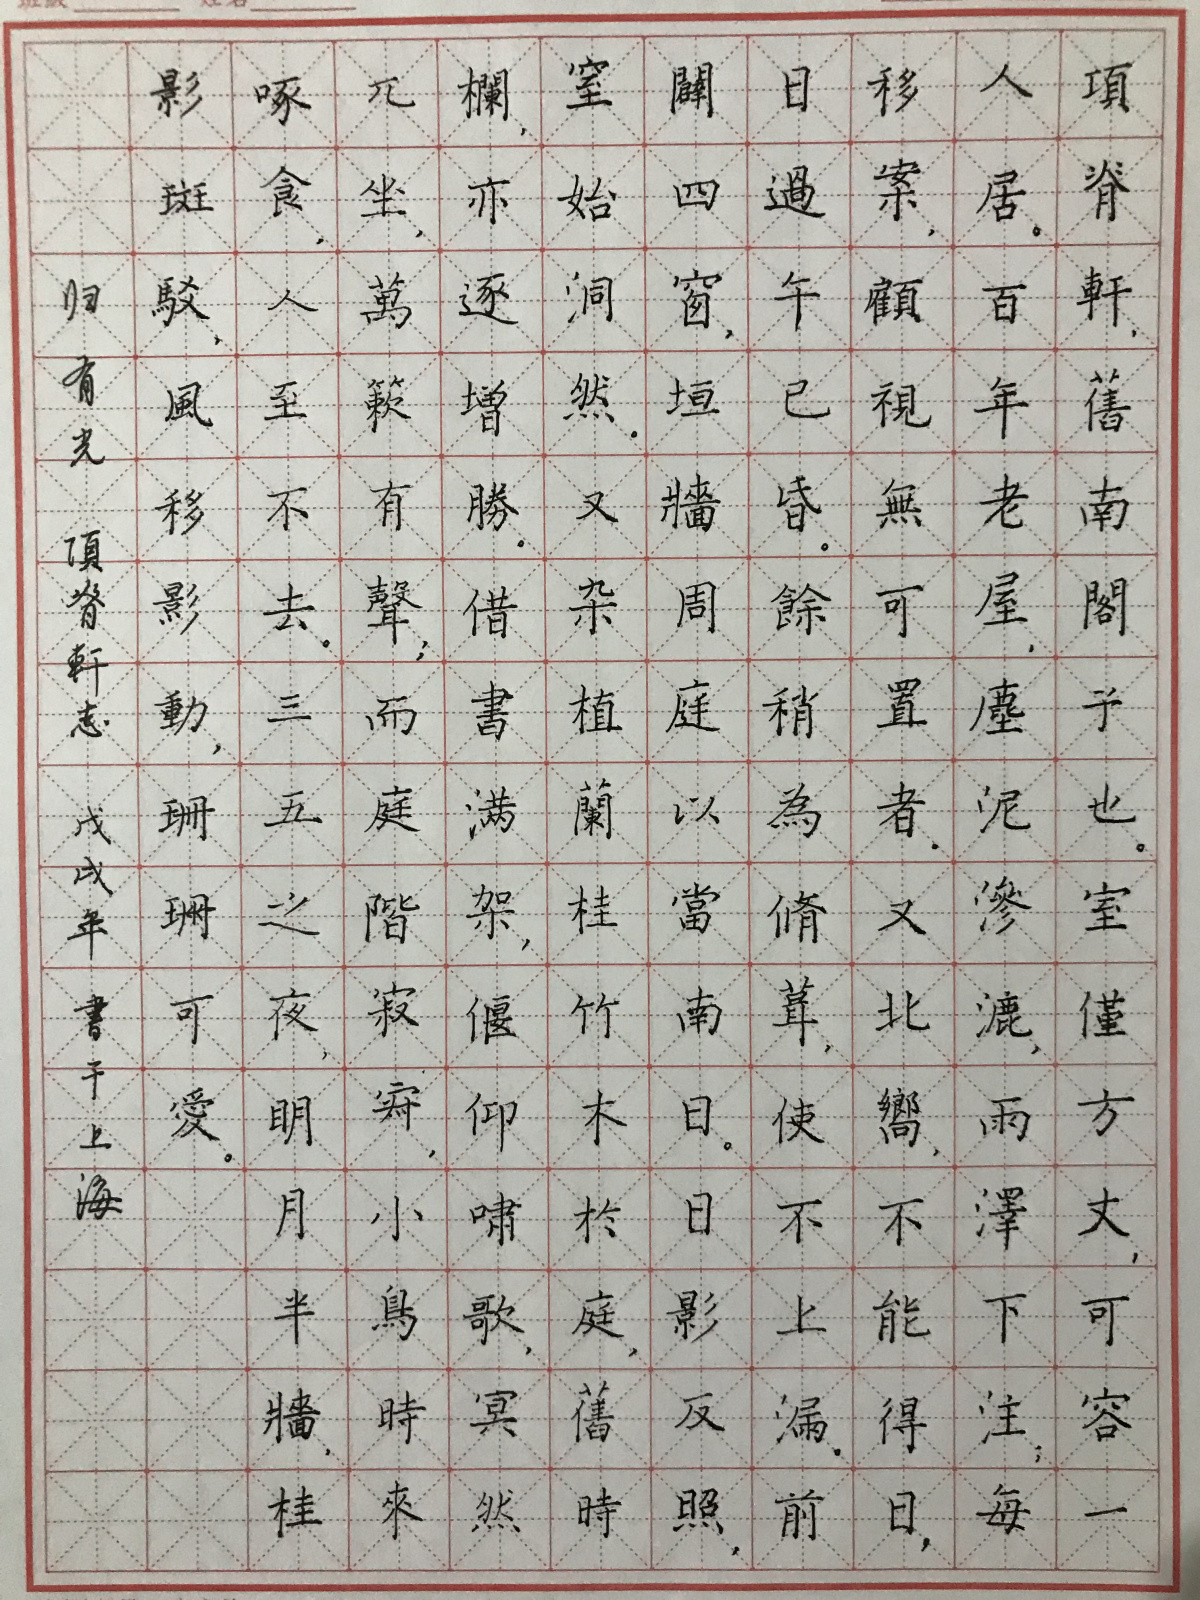 項脊軒,舊南閣子也。室僅方丈,可容一
人居。百年老屋,塵泥滲漉,雨澤下注;每
移案,顧視無可置者。又北嚮,不能得日,
日過午已昏。餘稍為脩葺,使不上漏。前
闢四窗,垣牆周庭以當南日。日影反照,
室始洞然。又杂植蘭桂竹木於庭,舊時
欄,亦逐增勝。借書满架,偃仰嘯歌,冥然
兀坐,萬籟有聲;而庭階寂寂,小鳥時來
啄食,人至不去。三五之夜,明月半牆,桂
影斑駁,風移影動,珊珊可愛。
归有光 項脊軒志 戊戌年 書于上海